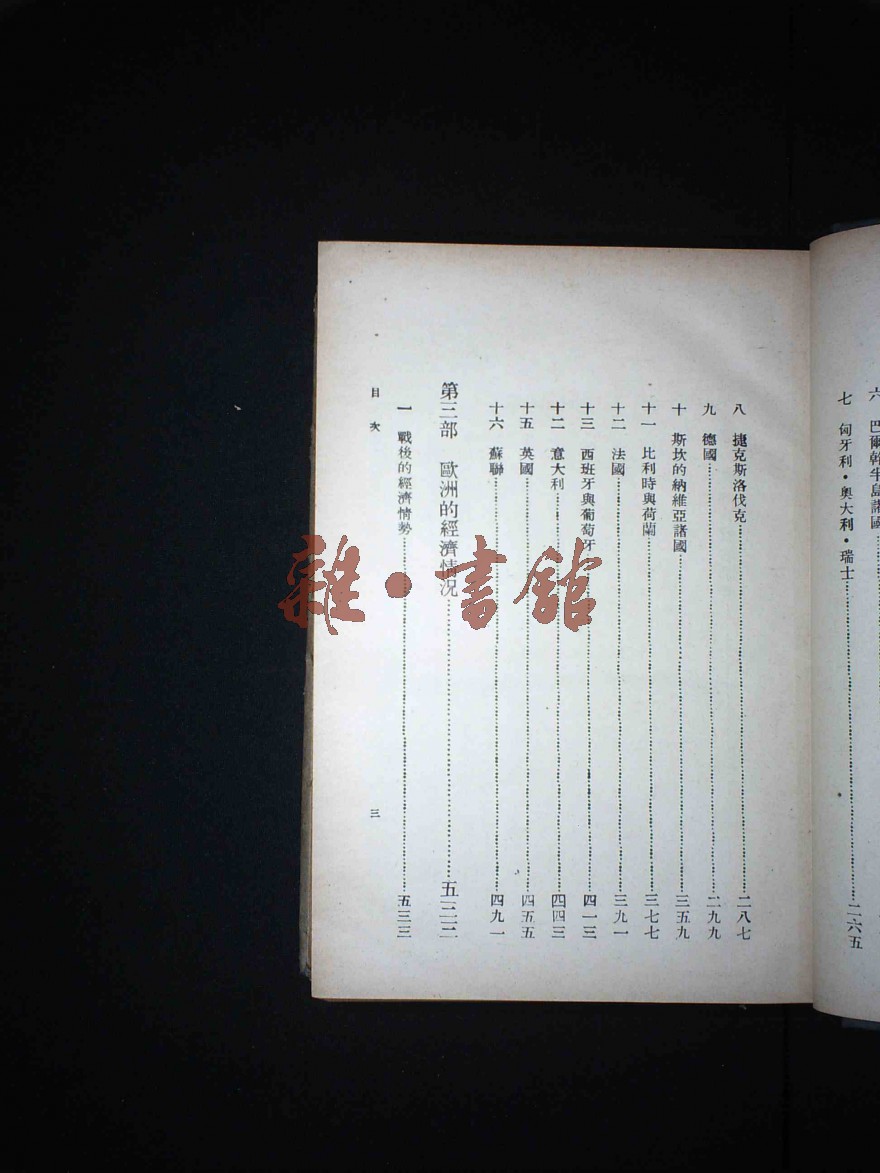 六 巴爾幹半島諸國
七 匈牙利•奧大利•瑞士……二六五
八 捷克斯洛伐克……二八七
九 德國……二九九
十 斯坎的納維亞諸國……三五九
十一 比利時與荷蘭……三七七
十二 法國……三九一
十三 西班牙與葡萄牙……四一三
十二 意大利……四四三
十五 英國……四五五
十六 蘇聯……四九一
第三部 歐洲的經濟情况……五三二
一 戰後的經濟情勢……五三三
目次
三
雜•書館